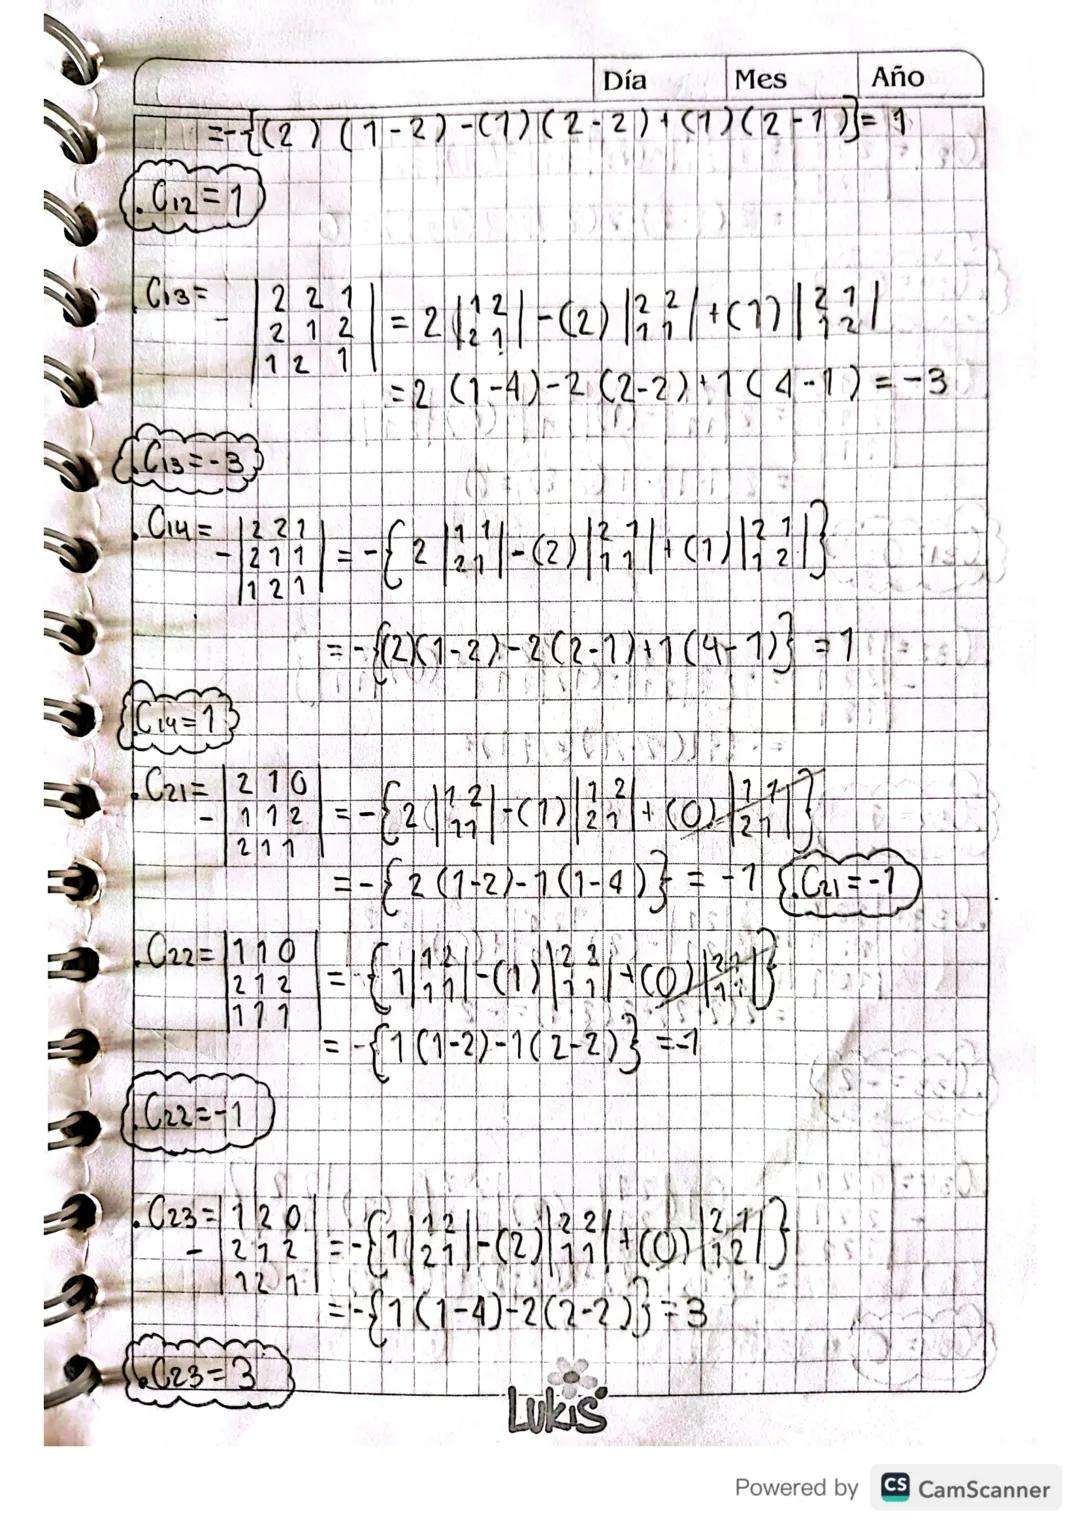 Día Mes Año
=-{(2)(1-2)-(1)(2-2)+(1)(2-1)}=1
.C12=1
.C13= - |2 2 1| = 2|1 2|-(2)|2 2|+(1)|2 1|
|2 1 2| |2 1| |1 1| |1 2|
|1 2 1|
=2(1-4)-2(2-2)+1(4-1)=-3
.C13=-3
.C14= -|2 2 1| = -{2|1 1|-(2)|2 1|+(1)|2 1|}
|2 1 1| |2 1| |1 1| |1 2|
|1 2 1|
=-{(2)(1-2)-2(2-1)+1(4-1)}=1
.C14=1
.C21= -|2 1 0| = -{2|1 2|-(1)|1 2|+(0)|1 1|}
|1 1 2| |1 1| |2 1| |2 1|
|2 1 1|
=-{2(1-2)-1(1-4)}=-1 .C21=-1
.C22=|1 1 0| = -{1|1 2|-(1)|2 2|+(0)|2 1|}
|2 1 2| |1 1| |1 1| |1 1|
|1 1 1|
=-{1(1-2)-1(2-2)}=-1
.C22=-1
.C23= -|1 2 0| =-{1|1 2|-(2)|2 2|+(0)|2 1|}
|2 1 2| |2 1| |1 1| |1 2|
|1 2 1|
=-{1(1-4)-2(2-2)}=3
.C23=3
Lukis
Powered by CS CamScanner